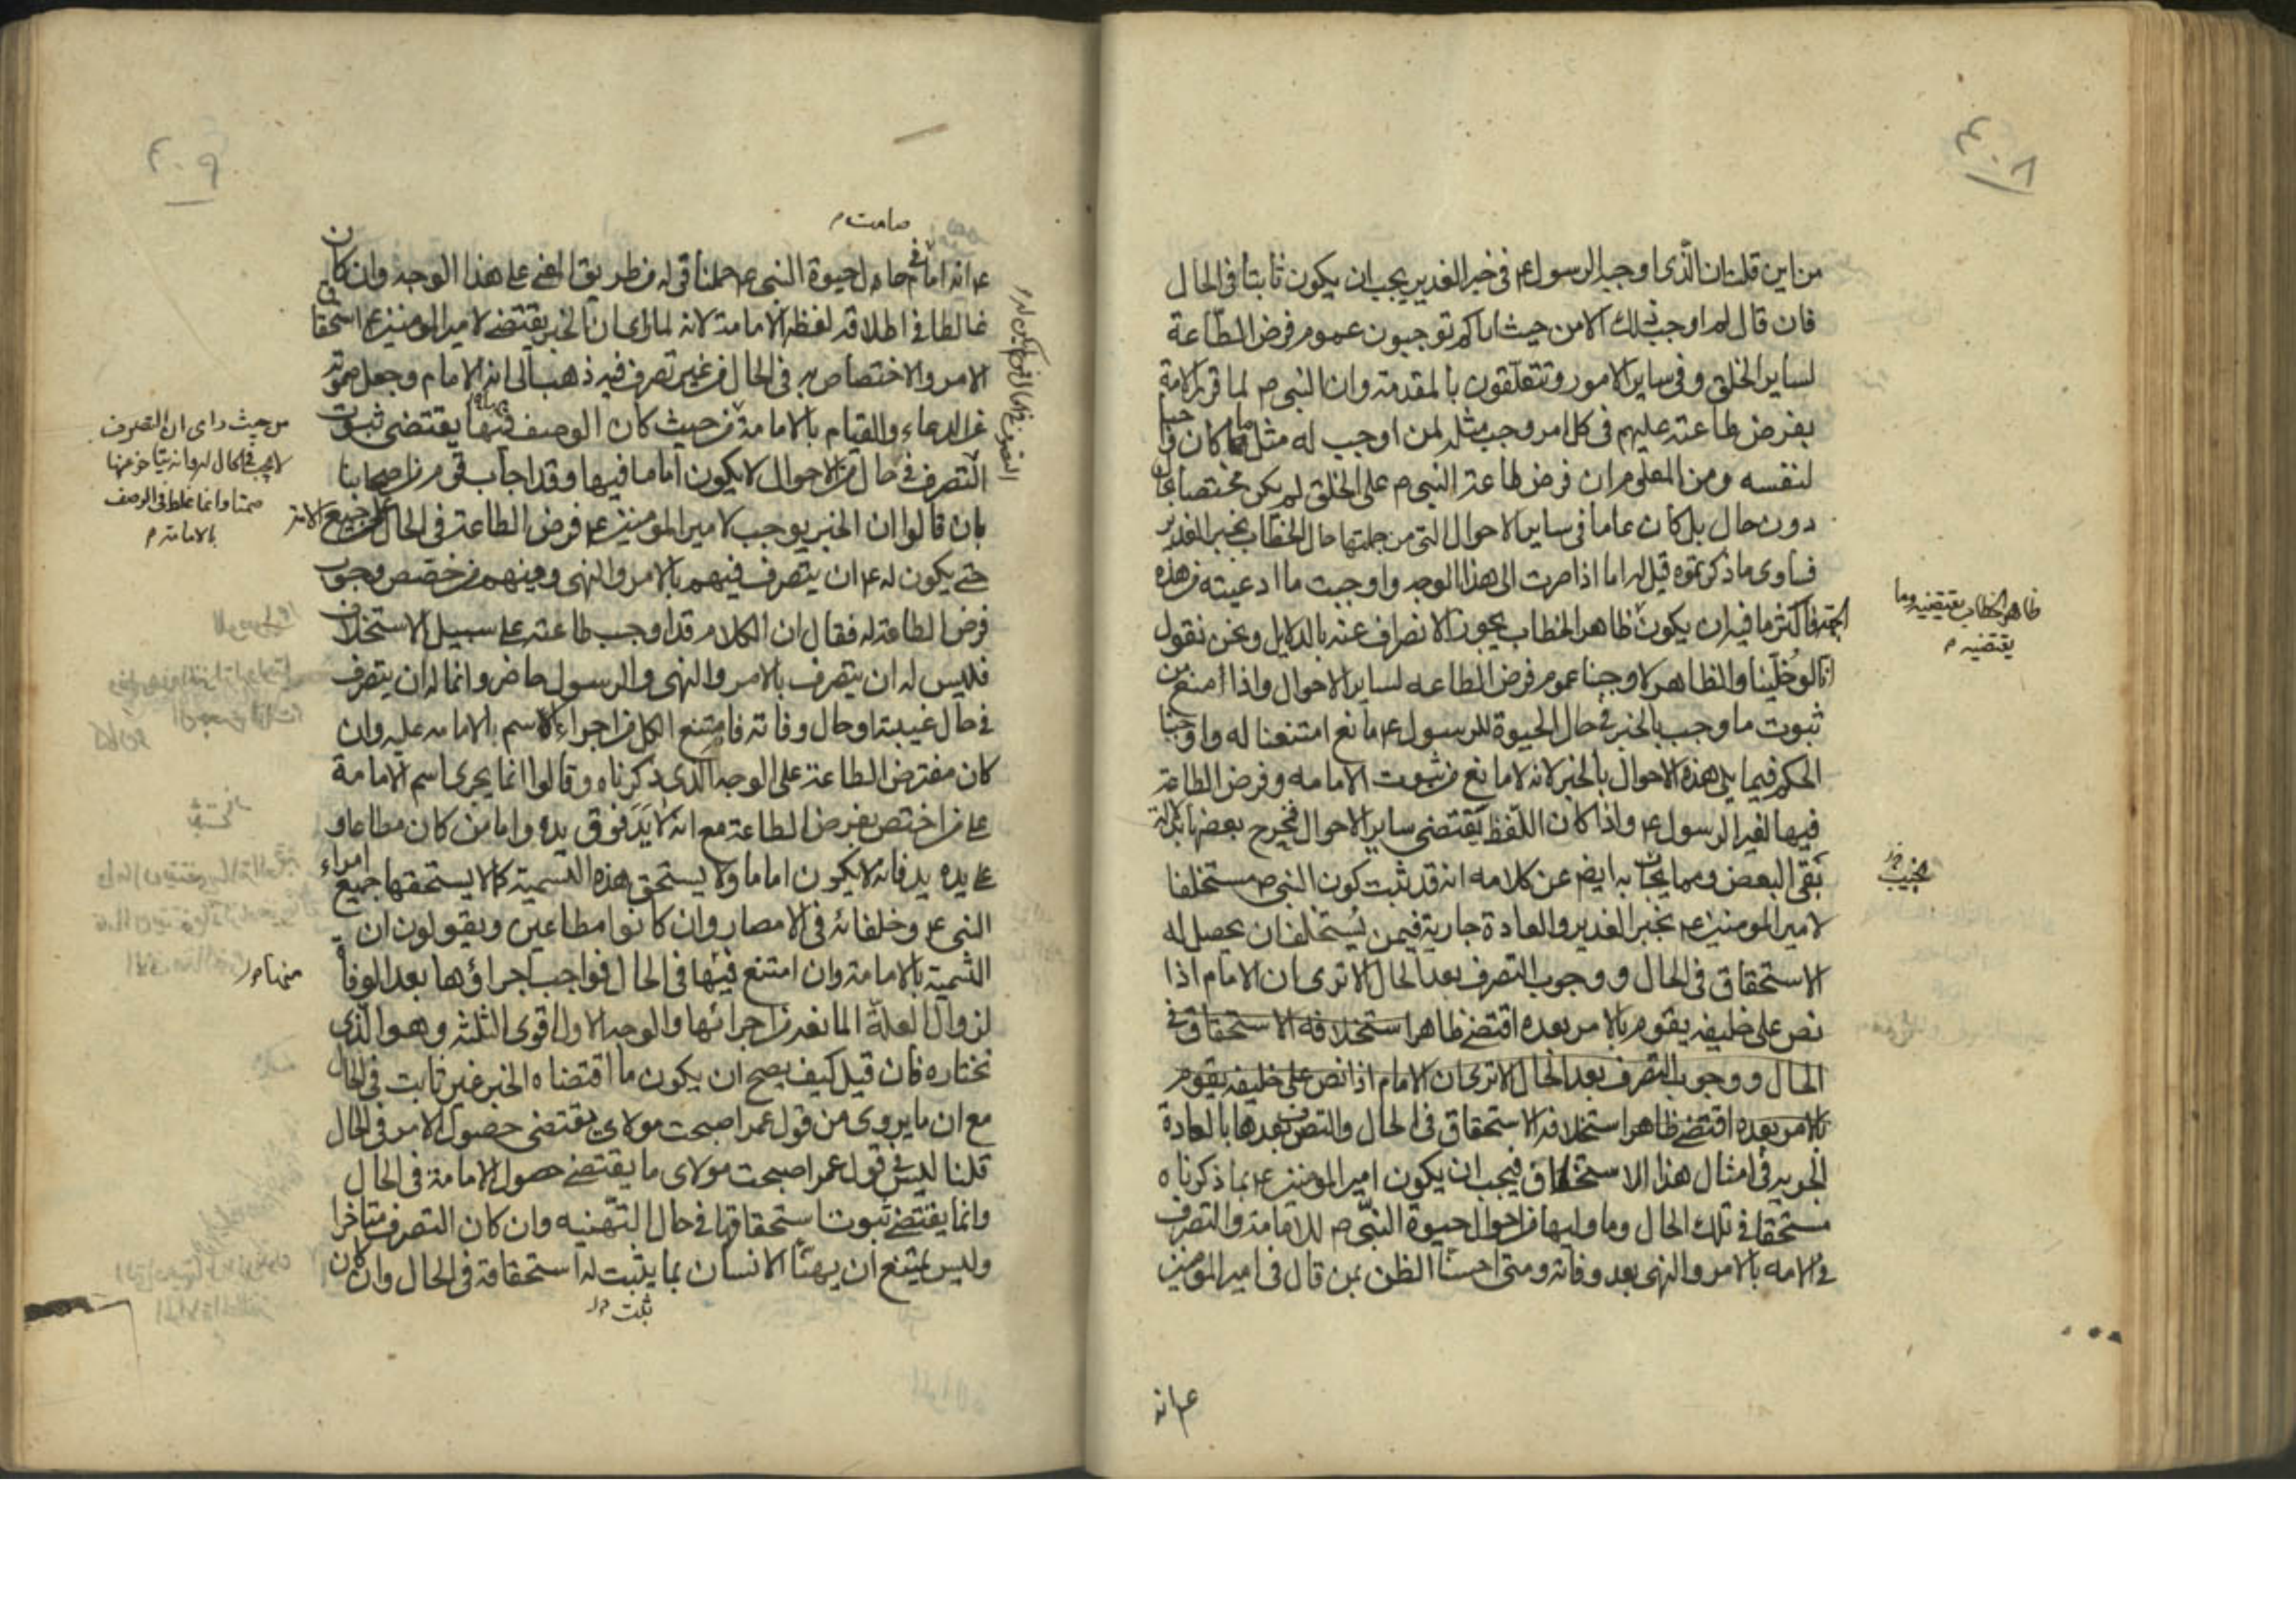 ٤٠٨
من اين قلت ان الذى اوجبه الرسول ع في خبر الغدير يجب ان يكون ثابتا في الحال
فان قال لم اوجب ذلك الا من حيث اياكم توجبون عموم فرض الطاعة
لساير الخلق وفي ساير الامور وتتعلقون بالمقدمة وان النبي ص لما قرر الامة
بفرض طاعته عليهم في كل امر وجب مثله لمن اوجب له مثل ما كان واجبا
لنفسه ومن المعلوم ان فرض طاعة النبي ص على الخلق لم يكن مختصا بحال
دون حال بل كان عاما في ساير الاحوال التى من جملتها حال الخطاب بخبر الغدير
فساوى ما ذكرتموه قيل له اما اذا صرت الى هذا الوجه واوجبت ما ادعيته من هذه
الجهة فاكثر ما فيه ان يكون ظاهر الخطاب يجوز الانصراف عنه بالدلايل ونحن نقول
ظاهر الخطاب يقتضيه وما
يقتضيه م
انا لو خلينا والظاهر لاوجبنا عموم فرض الطاعه لساير الاحوال واذا منع من
ثبوت ما وجب بالخبر في حال الحيوة للرسول ع مانع امتنعنا له واوجبنا
الحكم فيما يلى هذه الاحوال بالخبر لانه لا مانع من ثبوت الامامه وفرض الطاعة
فيها لغير الرسول ع واذا كان اللفظ يقتضى ساير الاحوال فخرج بعضها بدلالة
بقى البعض ومما يجاب به ايض عن كلامه انه قد ثبت كون النبي ص مستخلفا
لامير المومنين ع بخبر الغدير والعادة جارية فيمن يستخلف ان يحصل له
الاستحقاق في الحال ووجوب التصرف بعد الحال الا ترى ان الامام اذا
نص على خليفه يقوم بالامر بعده اقتضى ظاهر استخلافه الاستحقاق في
الحال ووجوب التصرف بعد الحال الا ترى ان الامام اذا نص على خليفه يقوم
بالامر بعده اقتضى ظاهر استخلافه الاستحقاق في الحال والتصرف بعدها بالعادة
الجارية في امثال هذا الاستحقاق فيجب ان يكون امير المومنين ع بما ذكرناه
مستحقا في تلك الحال وما وليها من احوال حيوة النبي ص للامامة والتصرف
في الامه بالامر والنهى بعد وفاته ومتى احسنا الظن بمن قال في امير المومنين
ع انه
٤٠٩
صامت م
ع انه امام في حال حيوة النبي ع حملنا قوله من طريق المعنى على هذا الوجه وان كان
غالطا في اطلاقه لفظه الامامة لانه لما راى ان الخبر يقتضى لامير المومنين ع استحقاق
الامر والاختصاص به في الحال من غير تصرف فيه ذهب الى انه الامام وجعل صموته
عن الدعاء والقيام بالامامة من حيث كان الوصف فيها يقتضى ثبوت
من حيث راى ان التصرف
لا يجب في الحال له وانه يتاخر عنها
صمتا وانما غلط في الوصف
بالامامة م
التصرف في حال من الاحوال لا يكون اماما فيها وقد اجاب قوم من اصحابنا
بان قالوا ان الخبر يوجب لامير المومنين ع فرض الطاعة في الحال على جميع الامة
حتى يكون له ع ان يتصرف فيهم بالامر والنهى ومنهم من خصص وجوب
فرض الطاعة له فقال ان الكلام قد اوجب طاعته على سبيل الاستخلاف
فليس له ان يتصرف بالامر والنهى والرسول حاضر وانما له ان يتصرف
في حال غيبته او حال وفاته فامتنع الكل من اجراء الاسم بالامامه عليه وان
كان مفترض الطاعة على الوجه الذى ذكرناه وقالوا انما يجرى اسم الامامة
على من اختص بفرض الطاعة مع انه لا يد فوق يده واما من كان مطاعا و
على يده يد فانه لا يكون اماما ولا يستحق هذه التسمية كما لا يستحقها جميع امراء
النبي ع وخلفائه في الامصار وان كانوا مطاعين ويقولون ان
التسمية بالامامة وان امتنع فيها في الحال فواجب اجراؤها بعد الوفاة
لزوال العلة المانعة من اجرائها والوجه الاول اقوى الثلثة وهو الذى
نختاره فان قيل كيف يصح ان يكون ما اقتضاه الخبر غير ثابت في الحال
مع ان ما يروى من قول عمر اصبحت مولاى يقتضى حصول الامر في الحال
قلنا ليس في قول عمر اصبحت مولاى ما يقتضى حصول الامامة في الحال
وانما يقتضى ثبوت استحقاقها في حال التهنيه وان كان التصرف متاخرا
وليس يمتنع ان يهنأ الانسان بما يثبت له استحقاقه في الحال وان كان